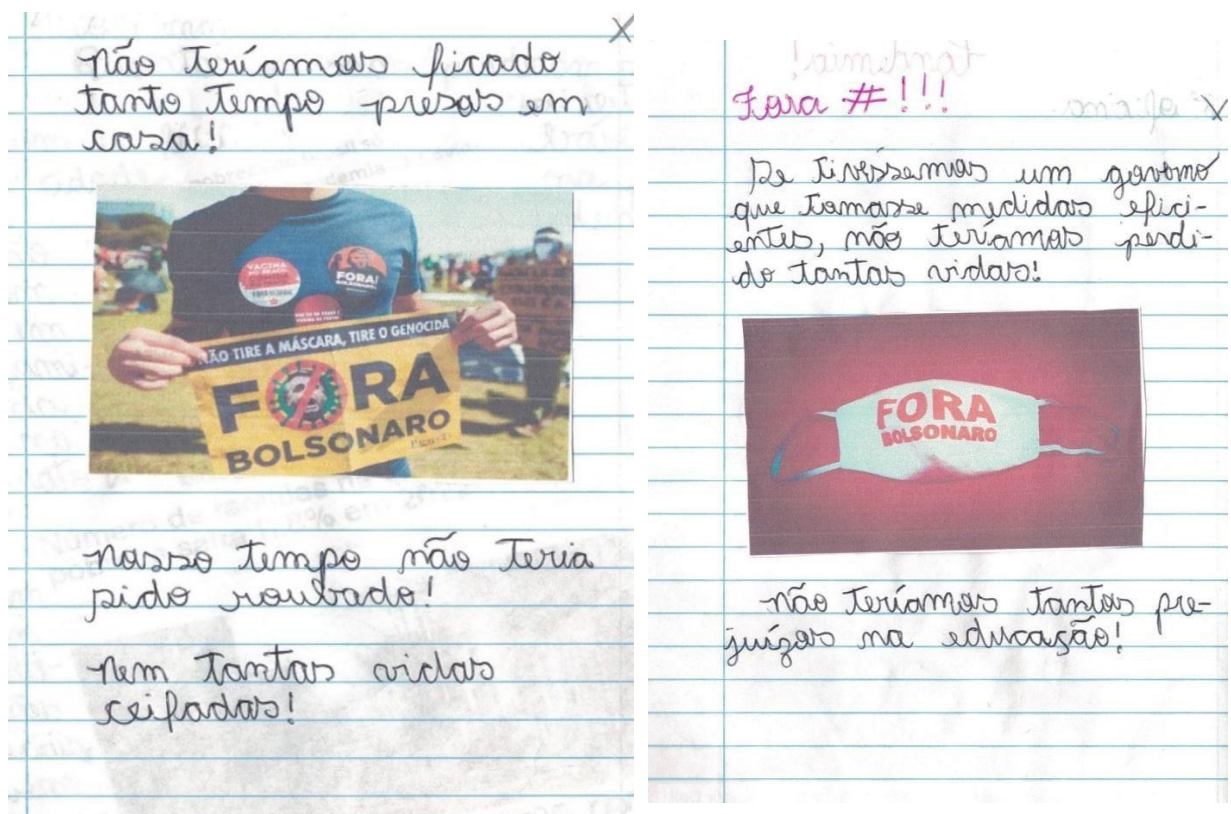 X
Não teríamos ficado
tanto tempo presos em
casa!
VACINA
NO BRAÇO
FORA!
BOLSONARO
NÃO TIRE A MÁSCARA, TIRE O GENOCIDA
FORA
BOLSONARO
Nosso tempo não teria
sido roubado!
Nem tantas vidas
ceifadas!
Fora #!!!
X
Se tivéssemos um governo
que tomasse medidas efici-
entes, não teríamos perdi-
do tantas vidas!
FORA
BOLSONARO
Não teríamos tantos pre-
juízos na educação!